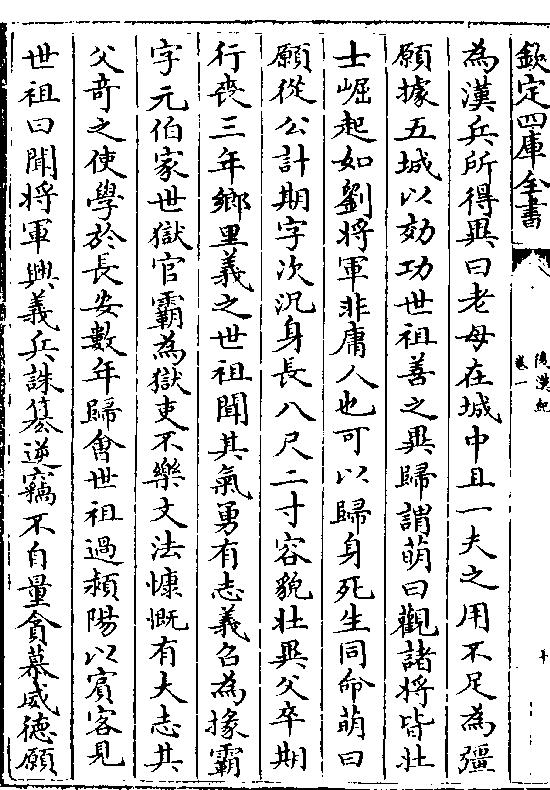 欽定四庫全書
後漢紀
卷一
十
為漢兵所得異曰老母在城中且一夫之用不足為彊
願據五城以效功世祖善之異歸謂萌曰觀諸將皆壯
士崛起如劉將軍非庸人也可以歸身死生同命萌曰
願從公計期字次況身長八尺二寸容貌壯異父卒期
行喪三年鄉里義之世祖聞其氣勇有志義召為掾霸
字元伯家世獄官霸為獄吏不樂文法慷慨有大志其
父奇之使學於長安數年歸會世祖過潁陽以賓客見
世祖曰聞將軍興義兵誅簒逆竊不自量貪慕威德願